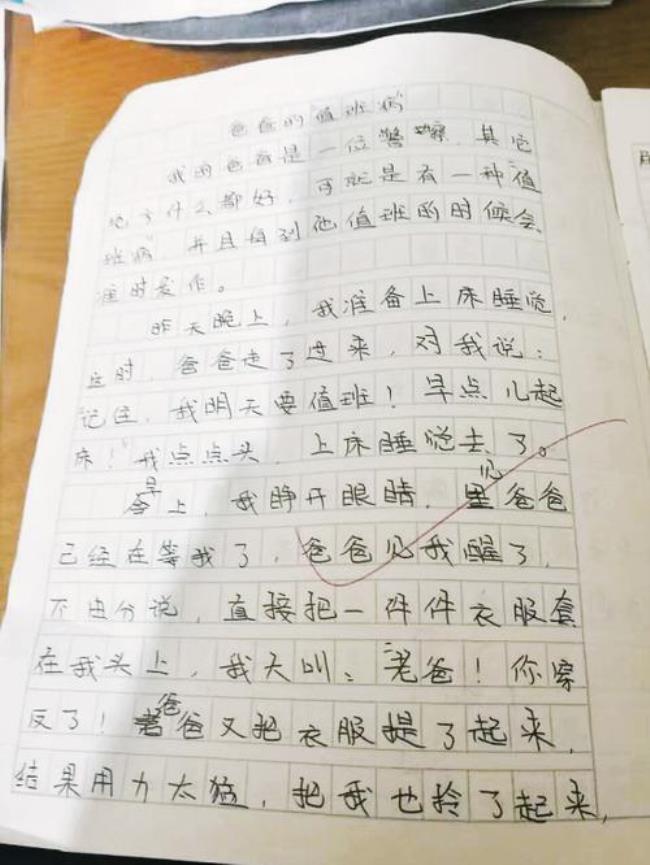 爸爸的“值班病”
我的爸爸是一位警察，其它
地方什么都好，可就是有一种“值
班病”，并且每到他值班的时候会
准时发作。
昨天晚上，我准备上床睡觉，
这时，爸爸走了过来，对我说：
记住，我明天要值班！早点儿起
床！”我点点头，上床睡觉去了。
早上，我睁开眼睛，见爸爸
已经在等我了，爸爸见我醒了，
不由分说，直接把一件件衣服套
在我头上，我大叫：“老爸！你穿
反了！爸爸又把衣服提了起来，
结果用力太猛，把我也拎了起来，